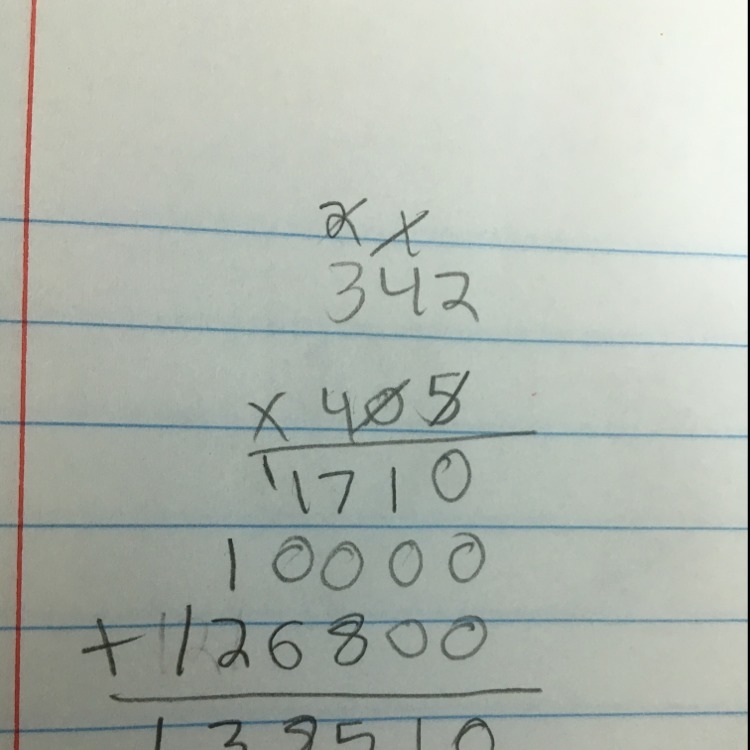 2 1
342
× 405
1
1710
1
0000
+ 126800
138510